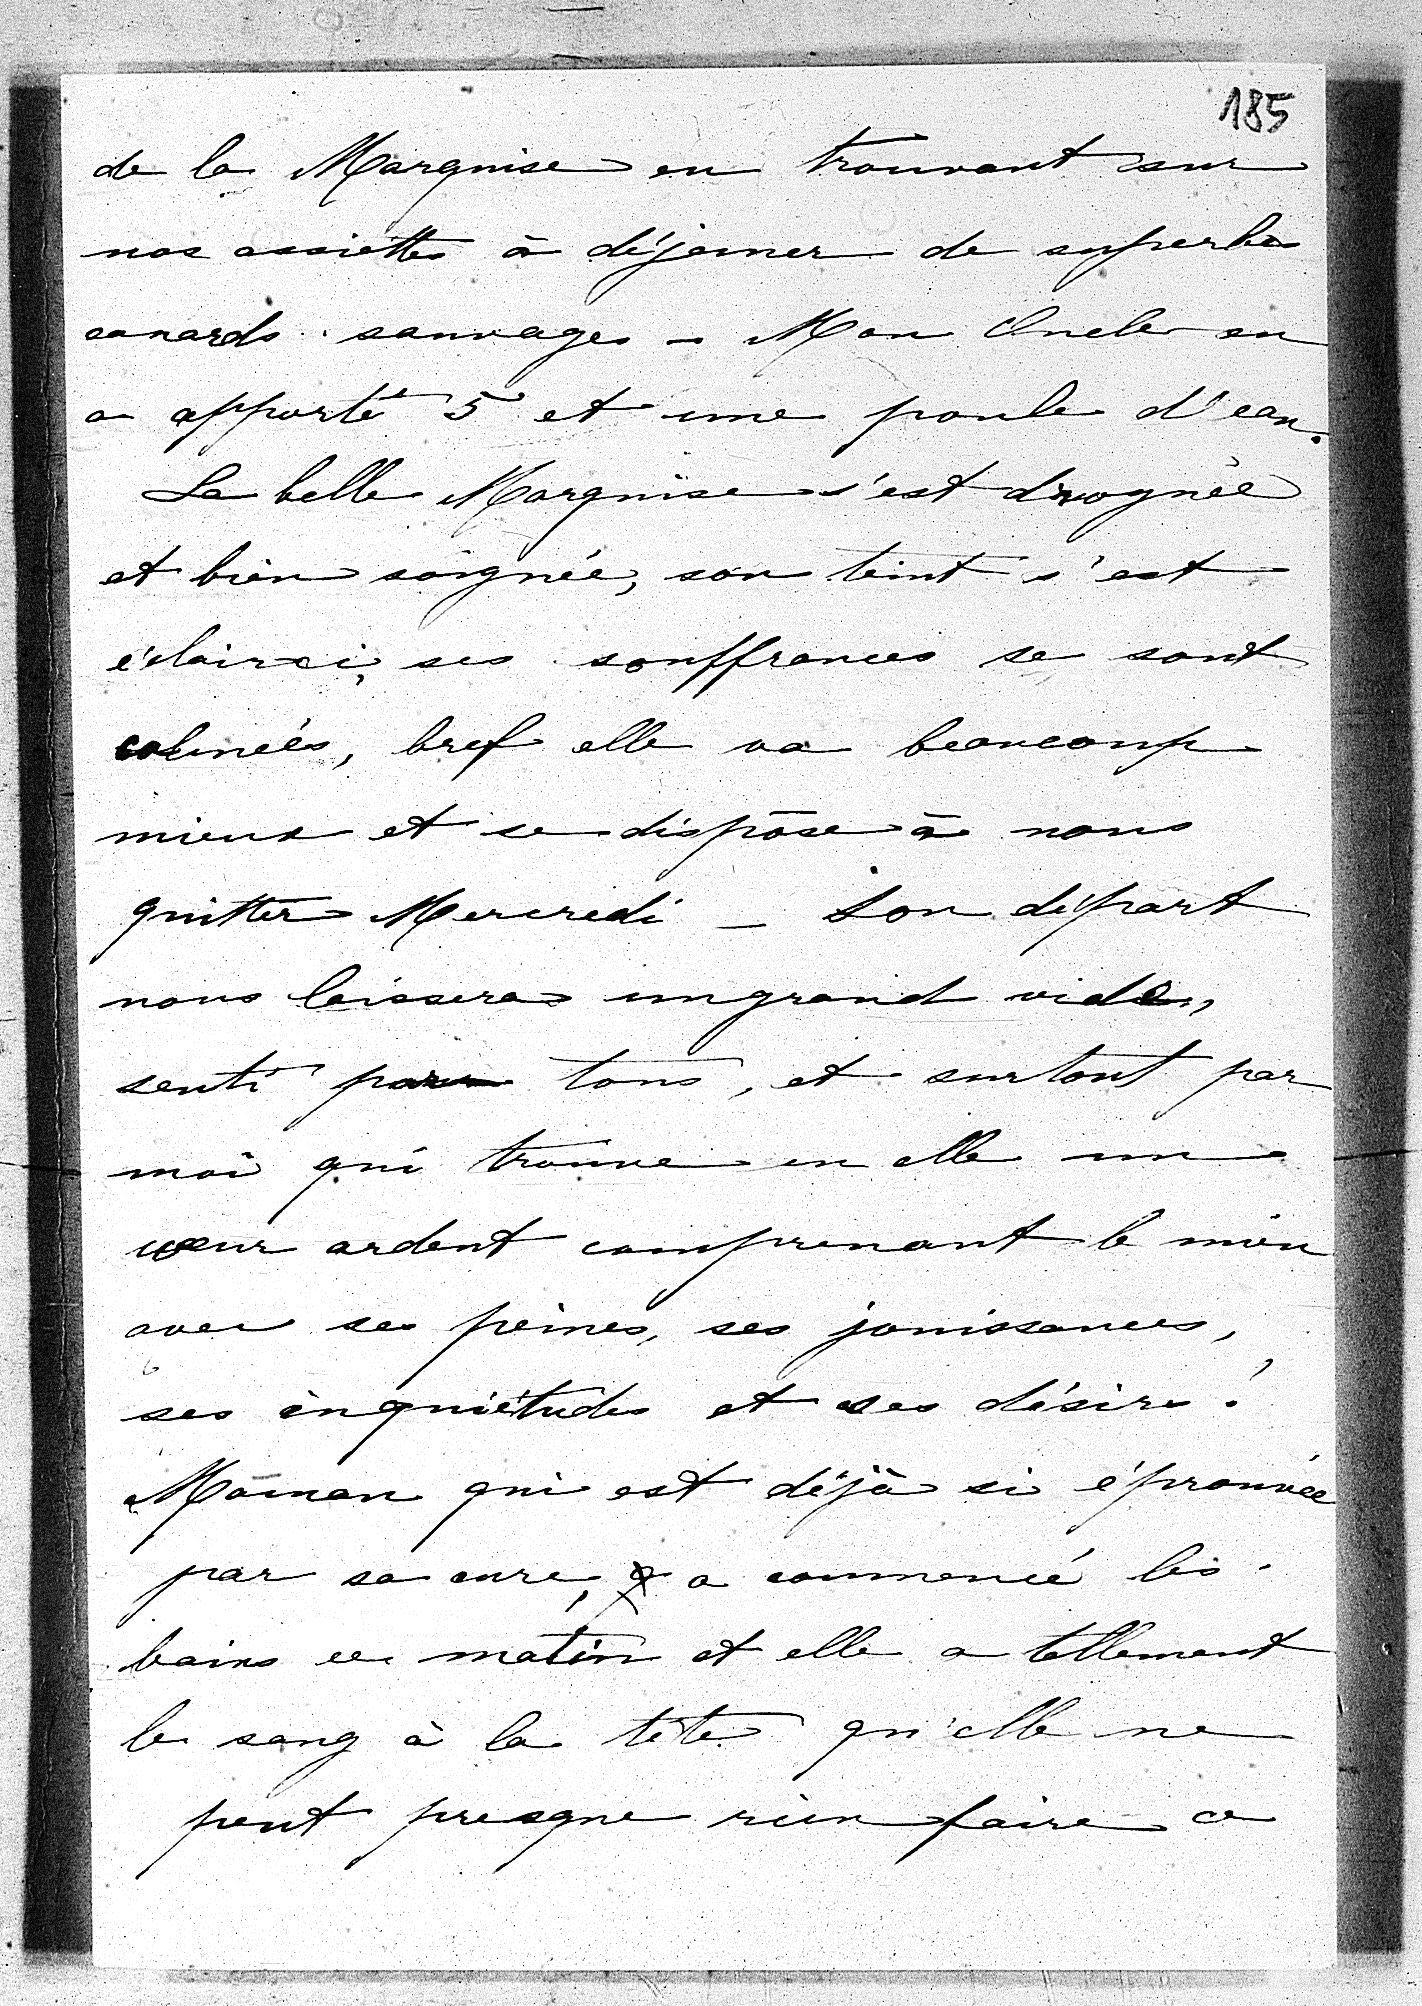 185
de la Marquise en trouvant sur
nos assiettes à déjeuner de superbes
canards sauvages - Mon Oncle en
a apporté 5 et une poule d'eau.
La belle Marquise s'est droguée
et bien soignée, son teint s'est
éclairci, ses souffrances se sont
calmées, bref elle va beaucoup
mieux et se dispose à nous
quitter Mercredi - Son départ
nous laissera un grand vide,
senti par tous, et surtout par
moi qui trouve en elle un
cœur ardent comprenant le mien
avec ses peines, ses jouissances,
ses inquiétudes et ses désirs !
Maman qui est déjà si éprouvée
par sa cure, a commencé les
bains ce matin et elle a tellement
le sang à la tête qu'elle ne
peut presque rien faire ce